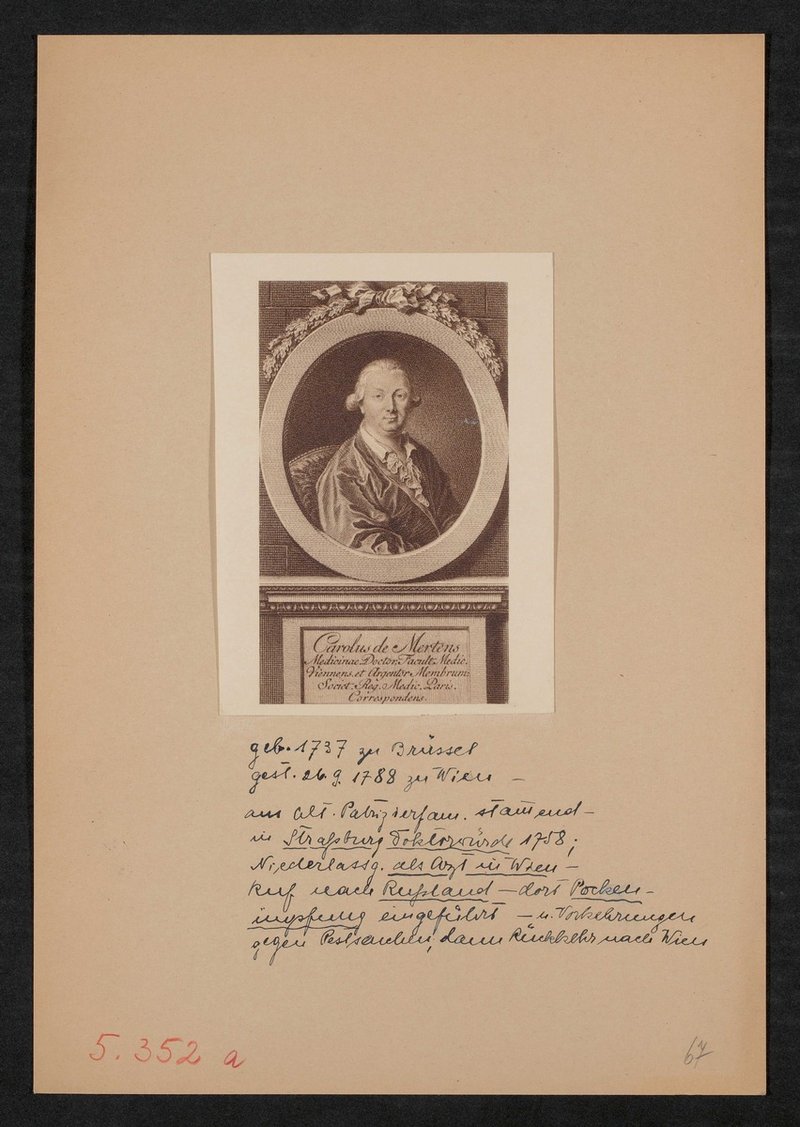 Carolus de Mertens
Medicinae Doctor, Facult. Medic.
Viennens. et Argentor. Membrum:
Societ. Reg. Medic. Paris.
Correspondens.
geb. 1737 zu Brüssel
gest. 26. 9. 1788 zu Wien –
aus alt. Patrizierfam. stam̄end –
in Straßburg Doktorwürde 1758;
Niederlassg. als Arzt in Wien –
Ruf nach Rußland – dort Pocken-
impfung eingeführt – u. Vorkehrungen
gegen Pestseuchen, dann Rückkehr nach Wien
5. 352 a
67